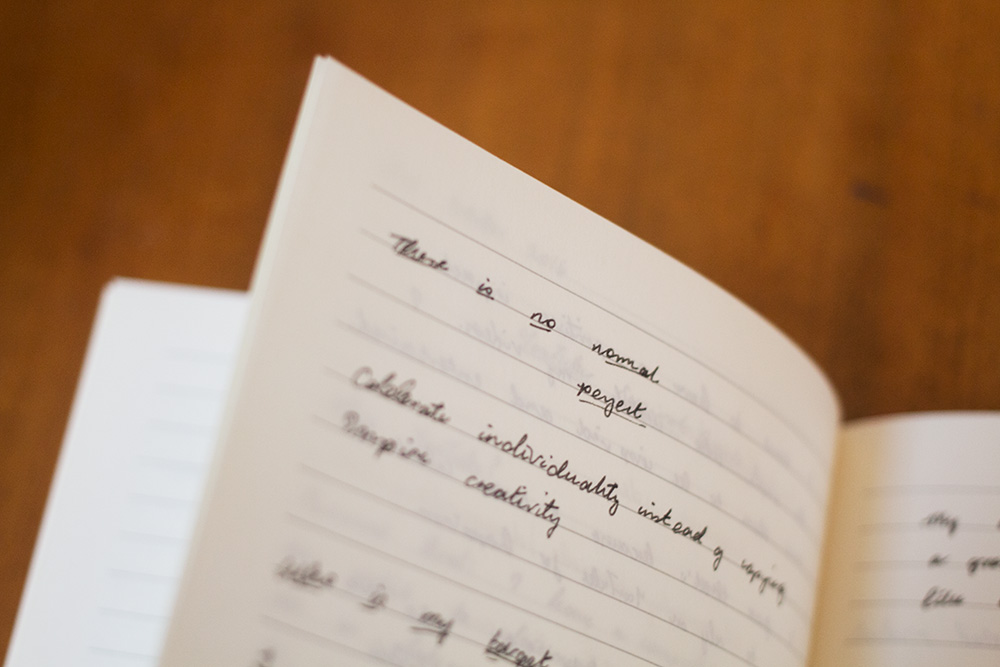 There is no normal
perfect
Celebrate individuality instead of
Inspire creativity
Who is my target
My
a
like